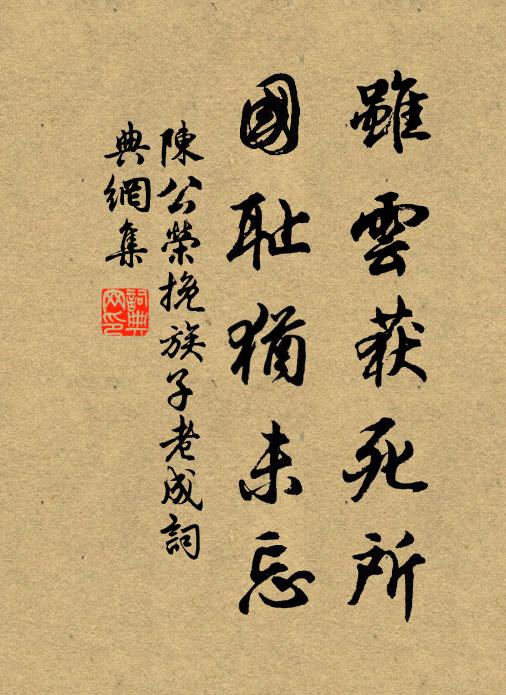 雖雲获死所
國耻猶未忘
陳公榮挽族子老成詞
典網集
詞典網印